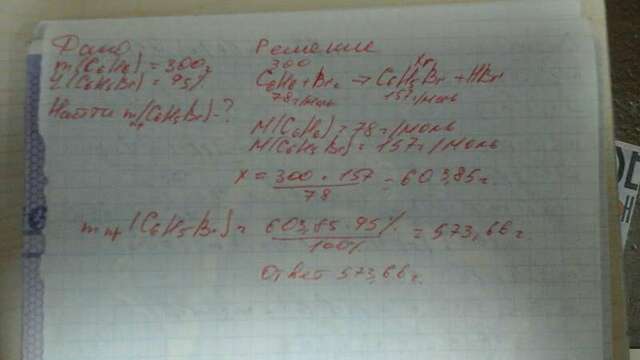 Дано
m(C6H6) = 300г
η(C6H5Br) = 95%
Найти mпр(C6H5Br) - ?
Решение
300 Xг
C6H6 + Br2 → C6H5Br + HBr
78 г/моль 157 г/моль
M(C6H6) = 78 г/моль
M(C6H5Br) = 157 г/моль
x = 300 · 157 / 78 = 603,85г.
mпр(C6H5Br) = 603,85 · 95% / 100% = 573,66 г
Ответ 573,66г.